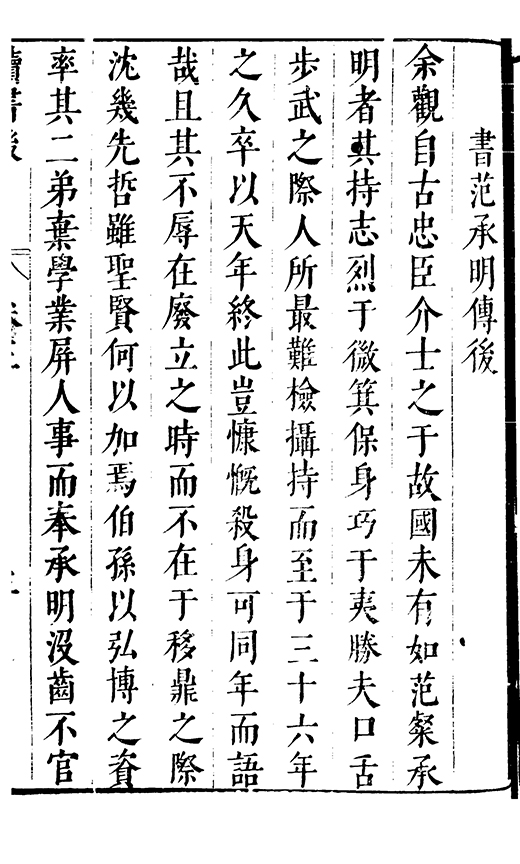 書范承明傳後
余觀自古忠臣介士之于故國未有如范粲承
明者其持志烈于微箕保身巧于夷勝夫口舌
步武之際人所最難檢攝持而至于三十六年
之久卒以天年終此豈慷慨殺身可同年而語
哉且其不辱在廢立之時而不在于移鼎之際
沈幾先哲雖聖賢何以加焉伯孫以弘博之資
率其二弟棄學業屏人事而奉承明沒齒不官
讀書後